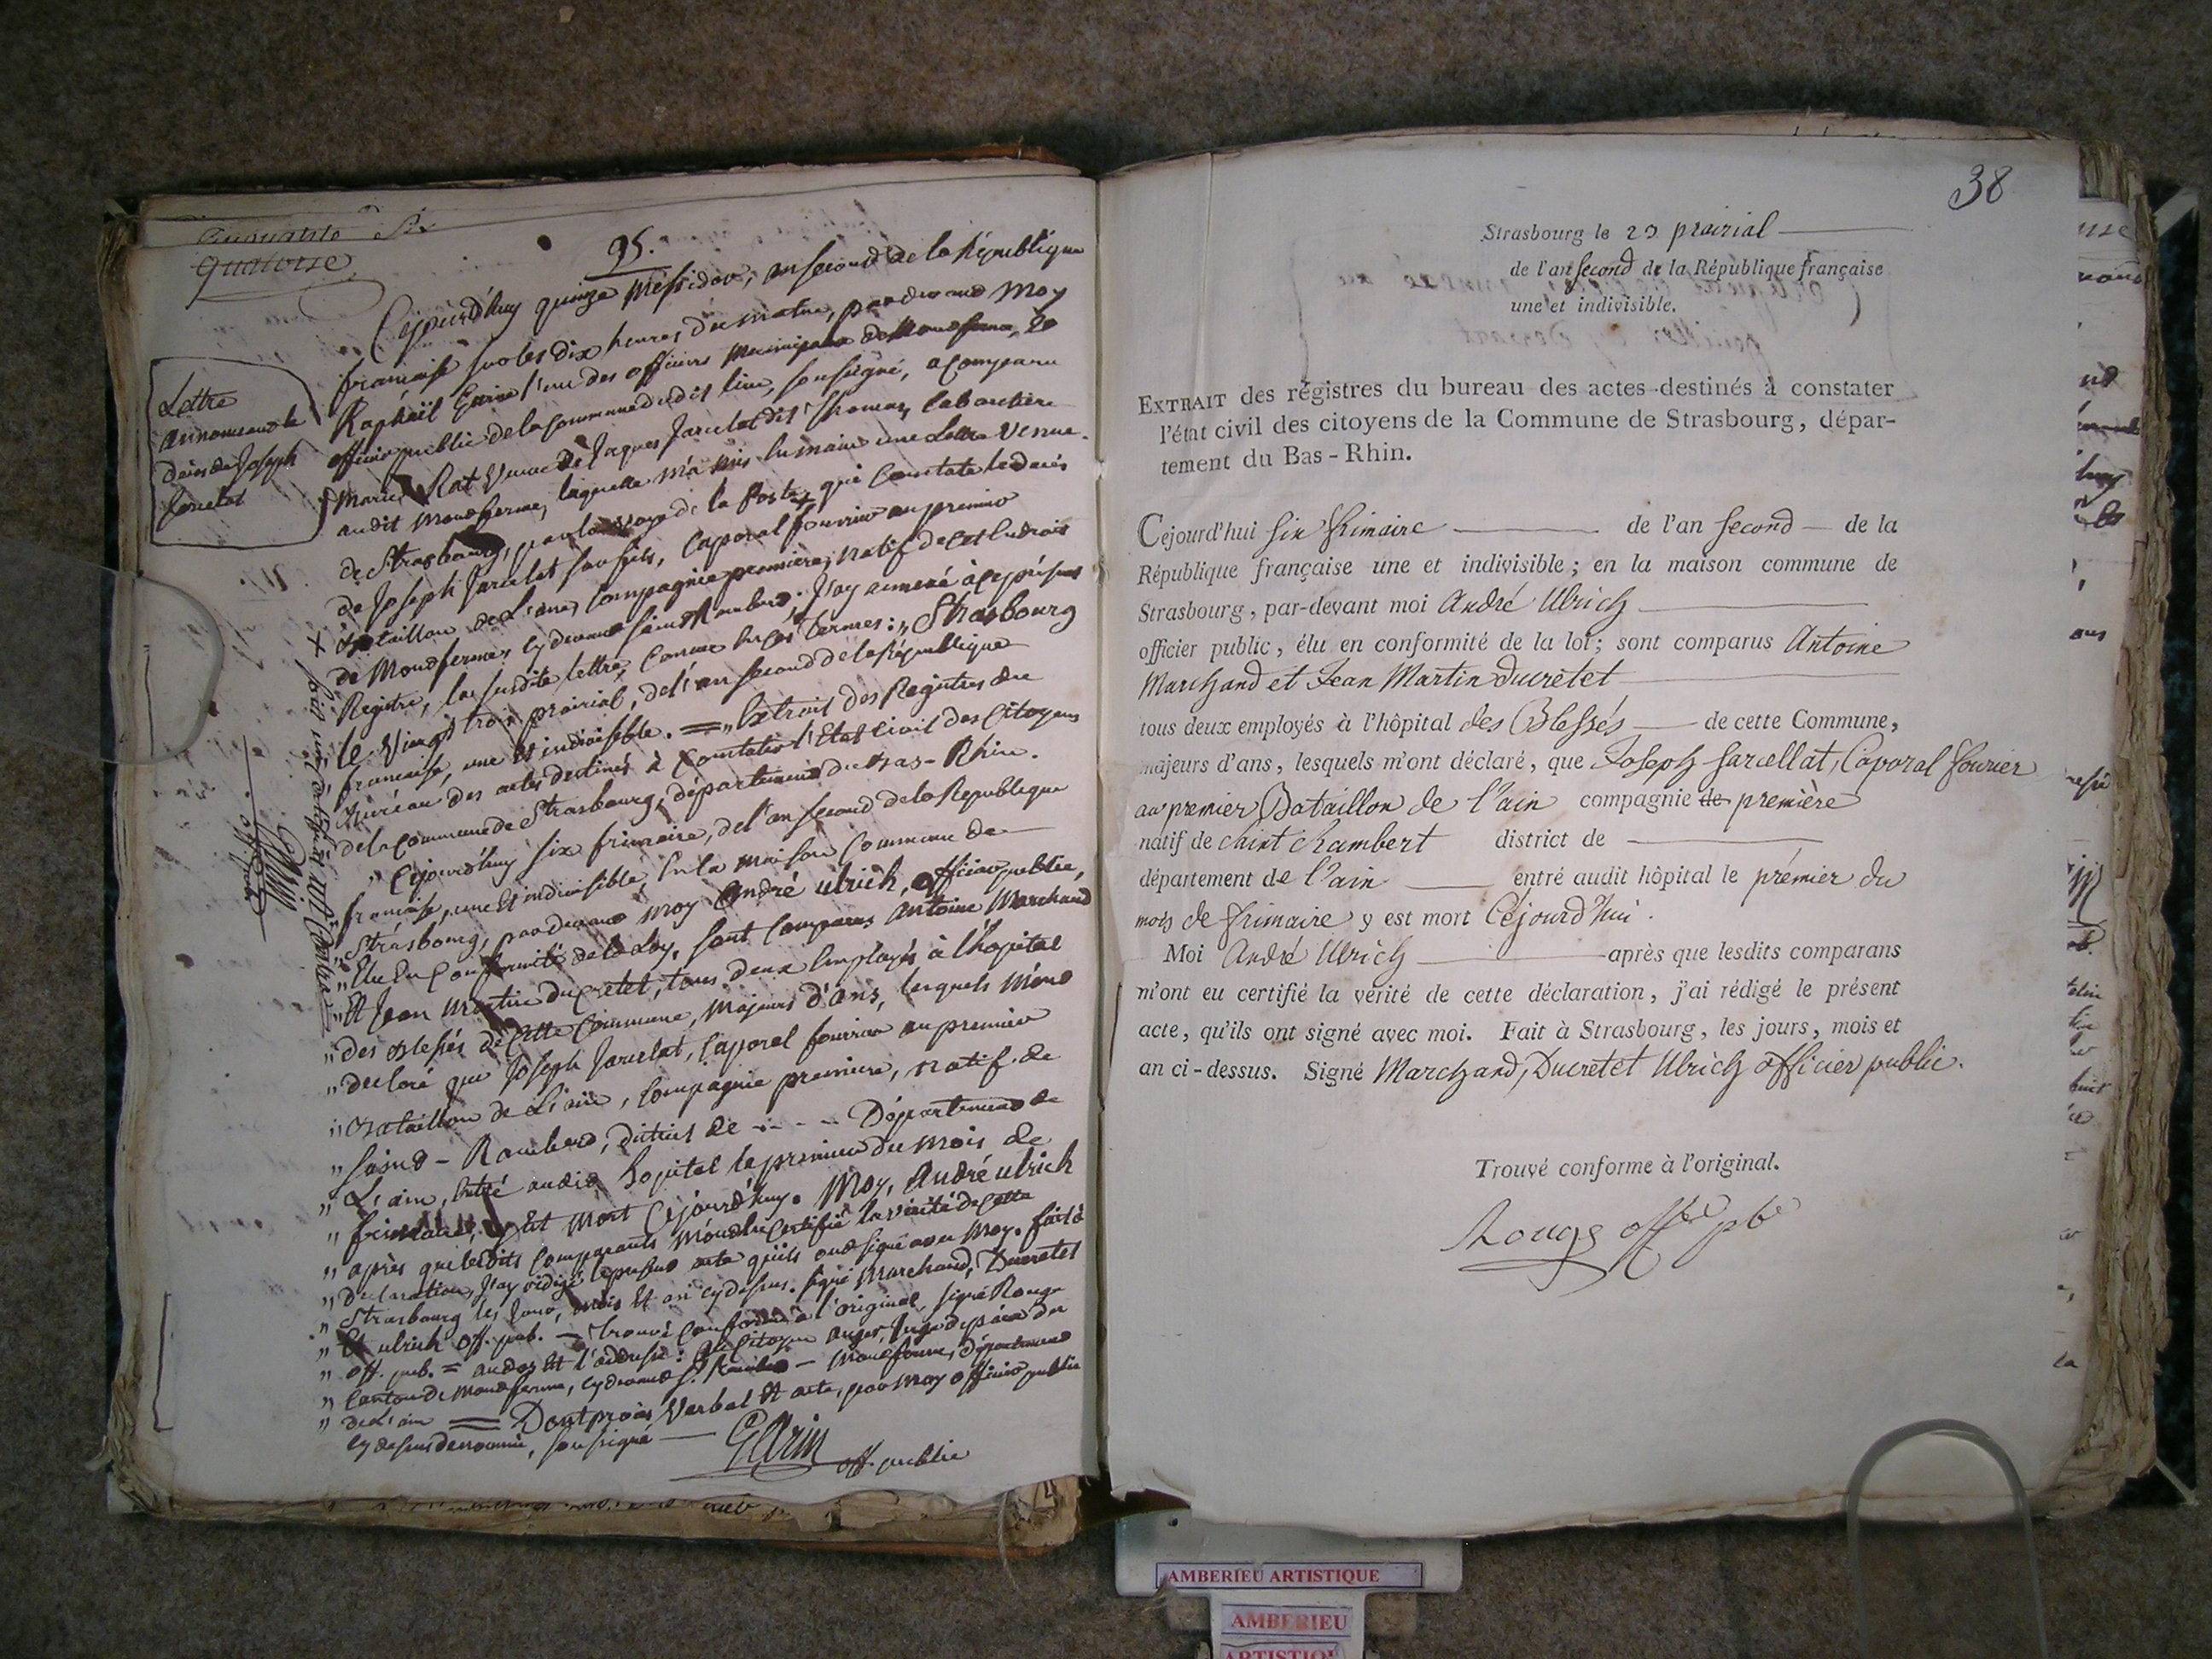 quatorse
95.
Cejourd'huy quinze Messidor, an second de la République
francaise sur les dix heures du matin, pardevant Moy
Raphaël Garin l'un des officiers Municipaux de Montferme, et
officier public de la Commune dudit lieu, soussigné, a Comparu
Marie Rat Veuve de Jaques Jarcelat dit Thomas, laboutière
audit Montferme, laquelle m'a mis en main une Lettre Venue
de Strasbourg, par la voye de la Poste, qui Constate le décès
de Joseph Jarcelat son fils, Caporal fourrier au premier
Bataillon de L'ain, Compagnie première, natif de cet endroit
de Montferme, cy devant saint Rambert. J'ay annexé à ce présent
Registre, la susdite lettre, Comme en ces termes: „ Strasbourg
„ le vingt trois prairial, de l'an second de la République
„ française, une et indivisible. = „ Extrait des Registres du
„ Bureau des actes destinés à Constater l'Etat Civil des Citoyens
„ de la Commune de Strasbourg, département du Bas-Rhin.
„ Cejourd'huy six frimaire, de l'an second de la République
„ française, une et indivisible, En la Maison Commune de
„ Strasbourg, pardevant moy André ulrich, officier public,
„ Elu En Conformité de la Loy, sont Comparus Antoine Marchand
„ Et Jean Martin Ducretet, tous deux Employés à l'hopital
„ des Blessés de Cette Commune, Majeurs d'ans, lesquels m'ont
„ declaré que Joseph Jarcelat, Caporal fourrier au premier
„ Bataillon de L'ain, Compagnie premiere, Natif de
„ Saint-Rambert, district de - - - - Département de
„ L'ain, Entré audit hopital le premier du mois de
„ frimaire, y Est Mort Cejourd'huy. Moy, André ulrich
„ après que lesdits Comparants m'ont eu certifié la vérité de Cette
„ Declaration, J'ay rédigé le présent acte qu'ils ont signé avec Moy. fait à
„ Strasbourg les jour, mois Et an cy dessus. signé Marchand, Ducretet
„ Et ulrich off. pub. - Trouvé Conforme à l'original, signé Rouge
„ off. pub. = au dos Et l'adresse: Au Citoyen auger, Juge de paix du
„ Canton de Montferme, cy devant St Rambert - Montferme, département
„ de L'ain == Dont procès Verbal Et acte, par Moy officier public
cy dessus denommé, soussigné
Garin off. public
Lettre
annonceant le
deces de Joseph
Jarcelat
38
Strasbourg le 23 prairial
de l'an second de la République française
une et indivisible.
EXTRAIT des régistres du bureau des actes destinés à constater
l'état civil des citoyens de la Commune de Strasbourg, dépar-
tement du Bas-Rhin.
Cejourd'hui six frimaire de l'an second de la
République française une et indivisible ; en la maison commune de
Strasbourg, par-devant moi André Ulrich
officier public, élu en conformité de la loi; sont comparus Antoine
Marchand et Jean Martin Ducretet
tous deux employés à l'hôpital des Blessés de cette Commune,
majeurs d'ans, lesquels m'ont déclaré, que Joseph Jarcellat, Caporal fourier
au premier Bataillon de l'ain compagnie de première
natif de Saint Rambert district de
département de l'ain entré audit hôpital le prémier du
mois de frimaire y est mort Céjourd'hui.
Moi André Ulrich après que lesdits comparans
m'ont eu certifié la vérité de cette déclaration, j'ai rédigé le présent
acte, qu'ils ont signé avec moi. Fait à Strasbourg, les jours, mois et
an ci-dessus. Signé Marchand, Ducretet Ulrich officier public.
Trouvé conforme à l'original.
Rouge offer pbe
AMBERIEU ARTISTIQUE
AMBERIEU
ARTISTIQUE